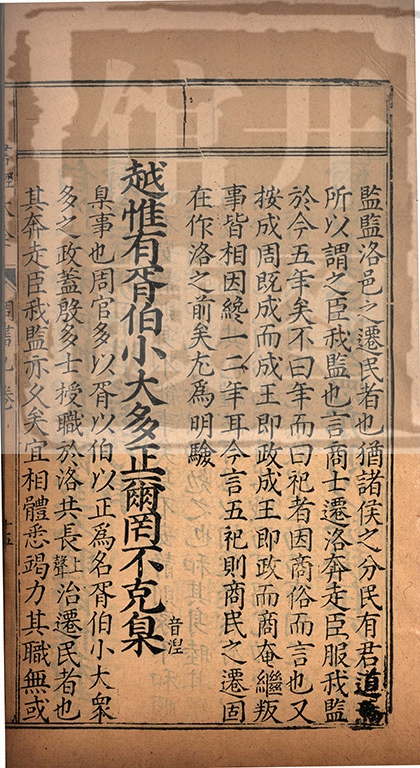 監監洛邑之遷民者也猶諸侯之分民有君道焉
所以謂之臣我監也言商士遷洛奔走臣服我監
於今五年矣不曰年而曰祀者因商俗而言也又
按成周既成而成王即政成王即政而商奄繼叛
事皆相因纔一二年耳今言五祀則商民之遷固
在作洛之前矣尤爲明驗
越惟有胥伯小大多正爾罔不克臬音湼
臬事也周官多以胥以伯以正爲名胥伯小大衆
多之政蓋殷多士授職於洛共長上聲治遷民者也
其奔走臣我監亦久矣宜相體悉竭力其職無或